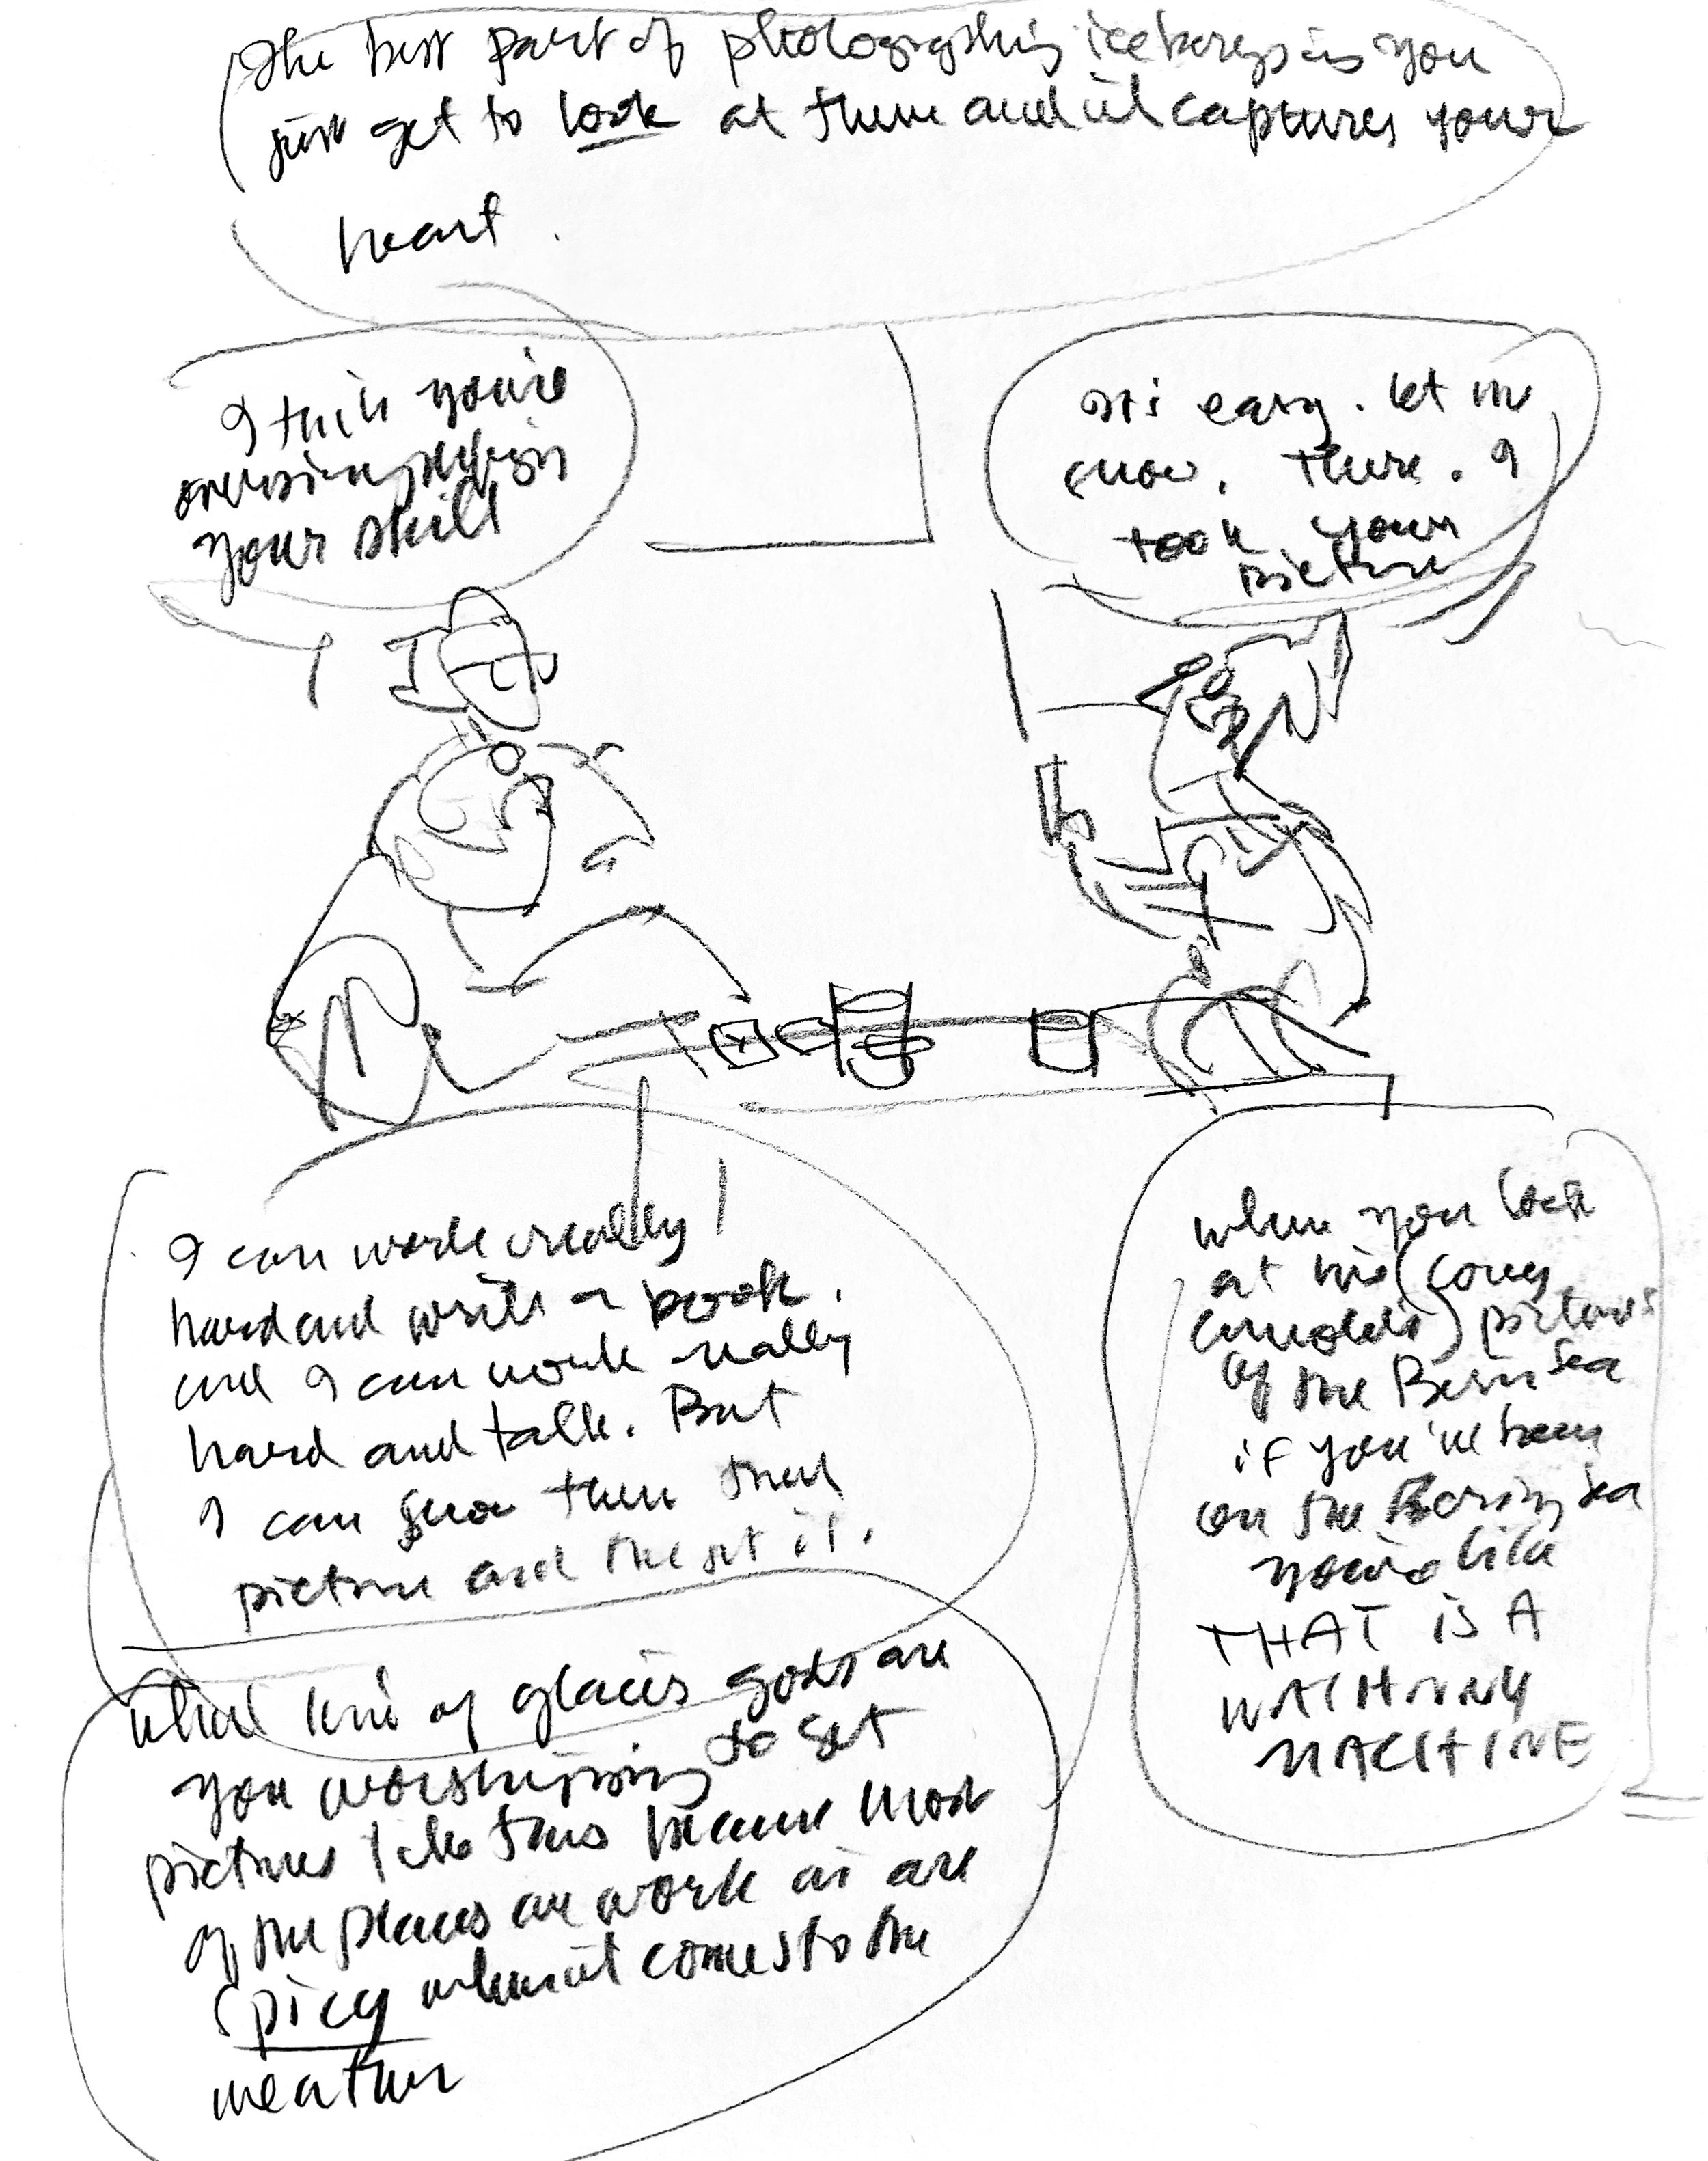 The best part of photographing icebergs is you
just get to look at them and it captures your
heart.
I think you're
your skill
It's easy. let me
know. There. I
took your
picture
I can work really
hard and write a book.
and I can work really
hard and talk. But
I can show them that
picture and they get it.
What kind of glacier gods are
you worshipping to get
pictures like this because most
of the places we work in are
spicy when it comes to the
weather
when you look
at his (Corey
Arnold's) pictures
of the Bering Sea
if you've been
on the Bering Sea
you're like
THAT IS A
WASHING
MACHINE